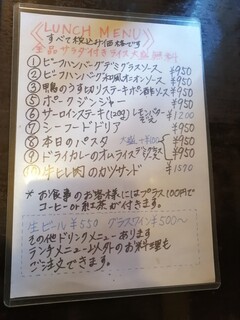 LUNCH MENU
すべて税込み価格です
全品サラダ付きライス大盛無料
① ビーフハンバーグデミグラスソース ¥950
② ビーフハンバーグ和風オニオンソース ¥950
③ 鴨のうす切りステーキポン酢ソース ¥950
④ ポークジンジャー ¥950
⑥ サーロインステーキ(120g) レモンバターソース ¥1200
⑦ シーフードドリア ¥950
⑧ 本日のパスタ 大盛 ¥950
⑨ ドライカレーのオムライス ¥950
⑩ 牛ヒレ肉のカツサンド ¥1570
* お食事のお客様にはプラス100円で
コーヒーor紅茶が付きます。
生ビール¥550 グラスワイン¥500〜
その他ドリンクメニューあります
ランチメニュー以外のお料理も
ご注文できます。